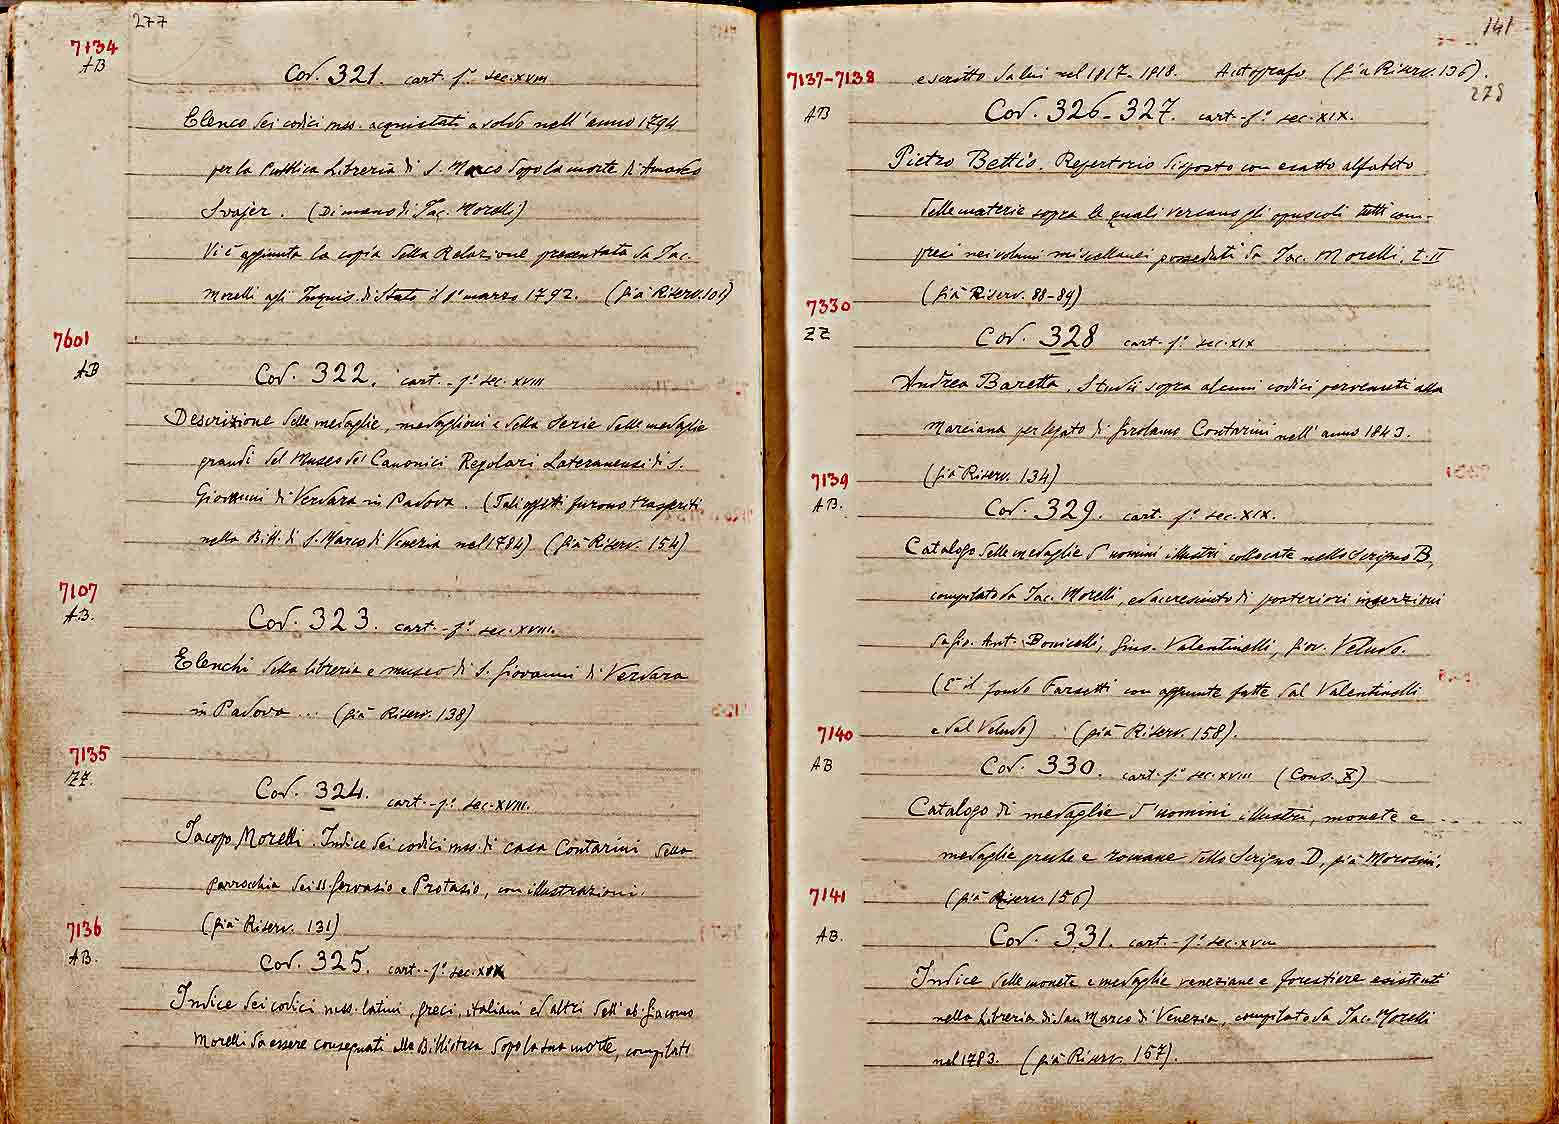 277
7134
AB
Cod. 321. cart. fº sec. XVIII
Elenco dei codici mss. acquistati a soldo nell'anno 1794
per la Pubblica Libreria di S. Marco dopo la morte di Amadeo
Svajer. (Di mano di Jac. Morelli)
Vi è aggiunta la copia della Relazione presentata da Jac.
Morelli agli Inquis. di Stato il 1º marzo 1792. (già Riserv. 101)
7601
AB
Cod. 322. cart. - fº sec. XVIII
Descrizione delle medaglie, medaglioni e della serie delle medaglie
grandi del Museo dei Canonici Regolari Lateranensi di S.
Giovanni di Verdara in Padova. (Tali oggetti furono trasferiti
nella Bibl. di S. Marco di Venezia nel 1784) (già Riserv. 154)
7107
AB.
Cod. 323. cart. - fº sec. XVIII.
Elenchi della libreria e museo di S. Giovanni di Verdara
in Padova ... (già Riserv. 138)
7135
ZZ.
Cod. 324. cart. - fº sec. XVIII.
Jacopo Morelli. Indice dei codici mss. di casa Contarini della
parrocchia dei SS Gervasio e Protasio, con illustrazioni.
(già Riserv. 131)
7136
AB.
Cod. 325. cart. - fº sec. XIX
Indice dei codici mss. latini, greci, italiani ed altri dell'ab. Giacomo
Morelli da essere consegnati alla Biblioteca dopo la sua morte, compilato
141
278
7137-7138
AB
e scritto da lui nel 1817-1818. Autografo (già Riserv. 136).
Cod. 326-327. cart. - fº sec. XIX.
Pietro Bettio. Repertorio disposto con esatto alfabeto
delle materie sopra le quali versano gli opuscoli tutti com-
presi nei volumi miscellanei posseduti da Jac. Morelli. t. II
(già Riserv. 88-89)
7330
ZZ
Cod. 328 cart. - fº sec. XIX
Andrea Baretta. Studii sopra alcuni codici pervenuti alla
Marciana per legato di Girolamo Contarini nell'anno 1843.
(già Riserv. 134)
7139
AB.
Cod. 329. cart. fº sec. XIX.
Catalogo delle medaglie d'uomini illustri collocate nello Scrigno B,
compilato da Jac. Morelli, ed accresciuto di posteriori inserzioni
da Gio. Ant. Bonicelli, Gius. Valentinelli, Giov. Veludo.
(È il fondo Farsetti con aggiunte fatte dal Valentinelli
e dal Veludo) (già Riserv. 158).
7140
AB
Cod. 330. cart. fº sec. XVIII (Cons. X)
Catalogo di medaglie d'uomini illustri, monete e
medaglie greche e romane dello Scrigno D, già Morosini.
(già Riserv. 156)
7141
AB.
Cod. 331. cart. - fº sec. XVIII
Indice delle monete e medaglie veneziane e forestiere esistenti
nella Libreria di San Marco di Venezia, compilato da Jac. Morelli
nel 1783. (già Riserv. 157).